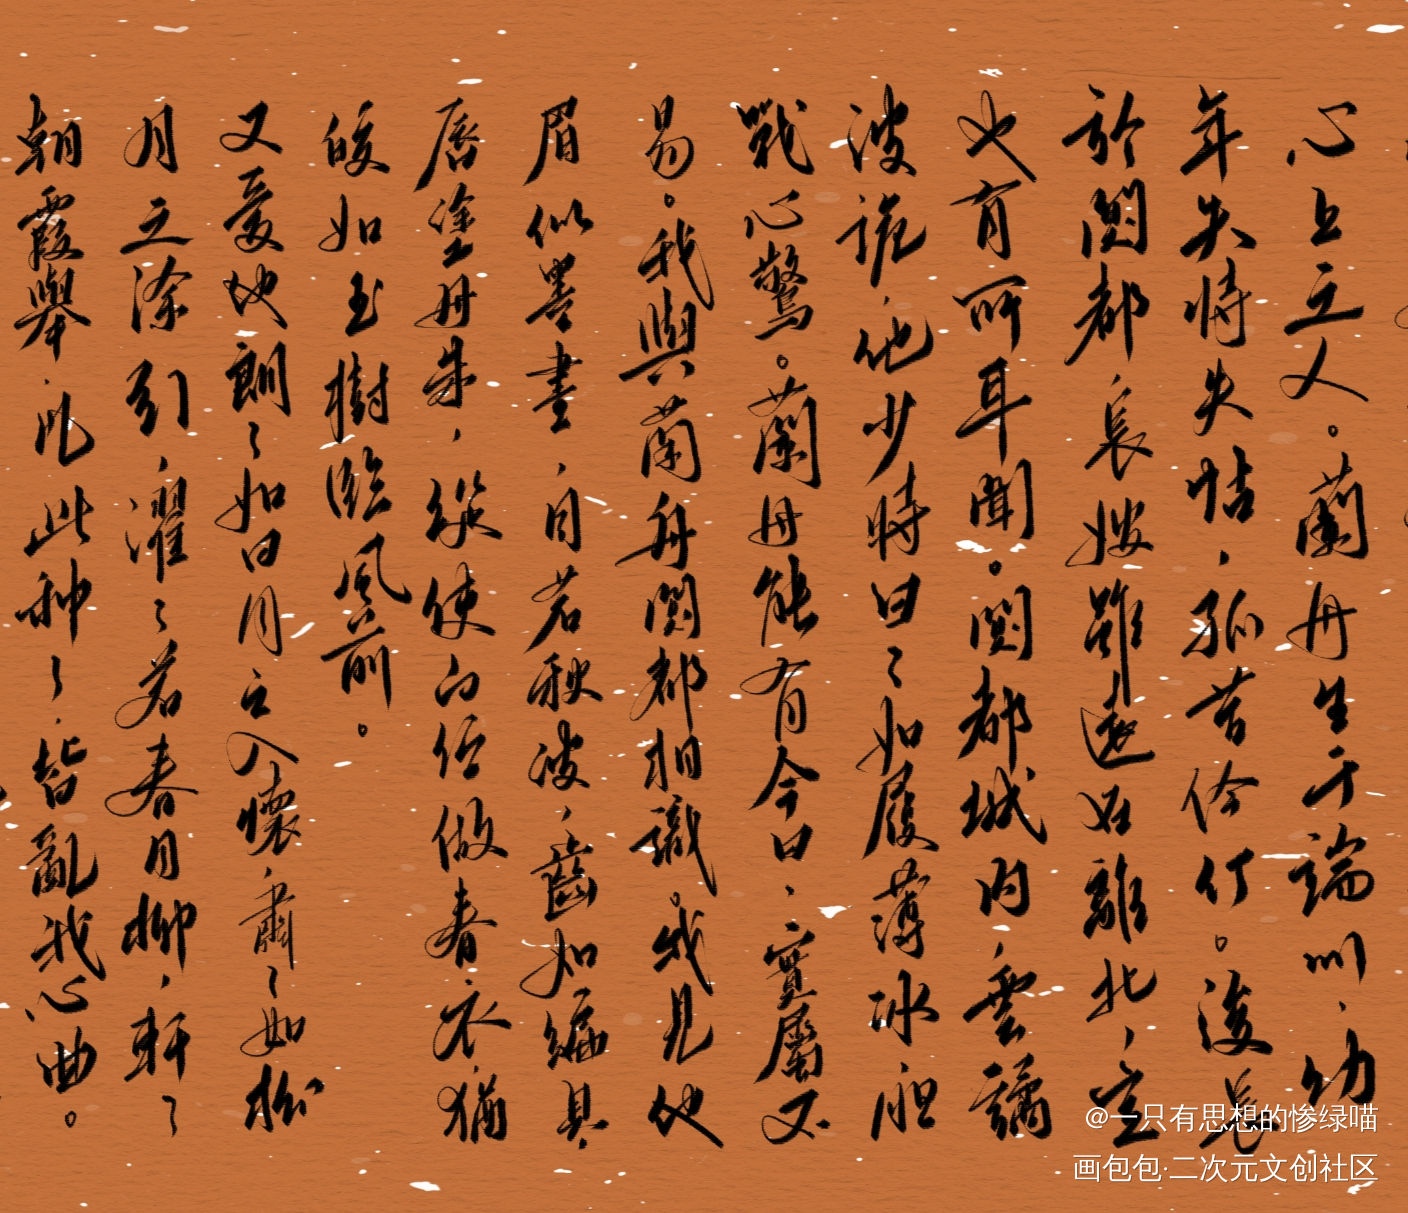 心上之人。蘭舟生于端州，幼
年失恃失怙，孤苦伶仃。後長
於闃都，長嫂雖遠在離北，定
也有所耳聞。闃都城内，雲譎
波詭，他少時日々如履薄冰，胆
戰心驚。蘭舟能有今日，實屬不
易。我與蘭舟闃都相識。我見他
眉似墨畫，目若秋波，齒如編貝
唇塗丹朱，縱使白做春衣，猶
皎如玉樹臨風前。
又愛他朗々如日月之入懷，肅々如松
月之徐引，濯々若春月柳，軒々
朝霞舉，凡此种々，皆亂我心曲。
@一只有思想的惨绿喵
画包包·二次元文创社区